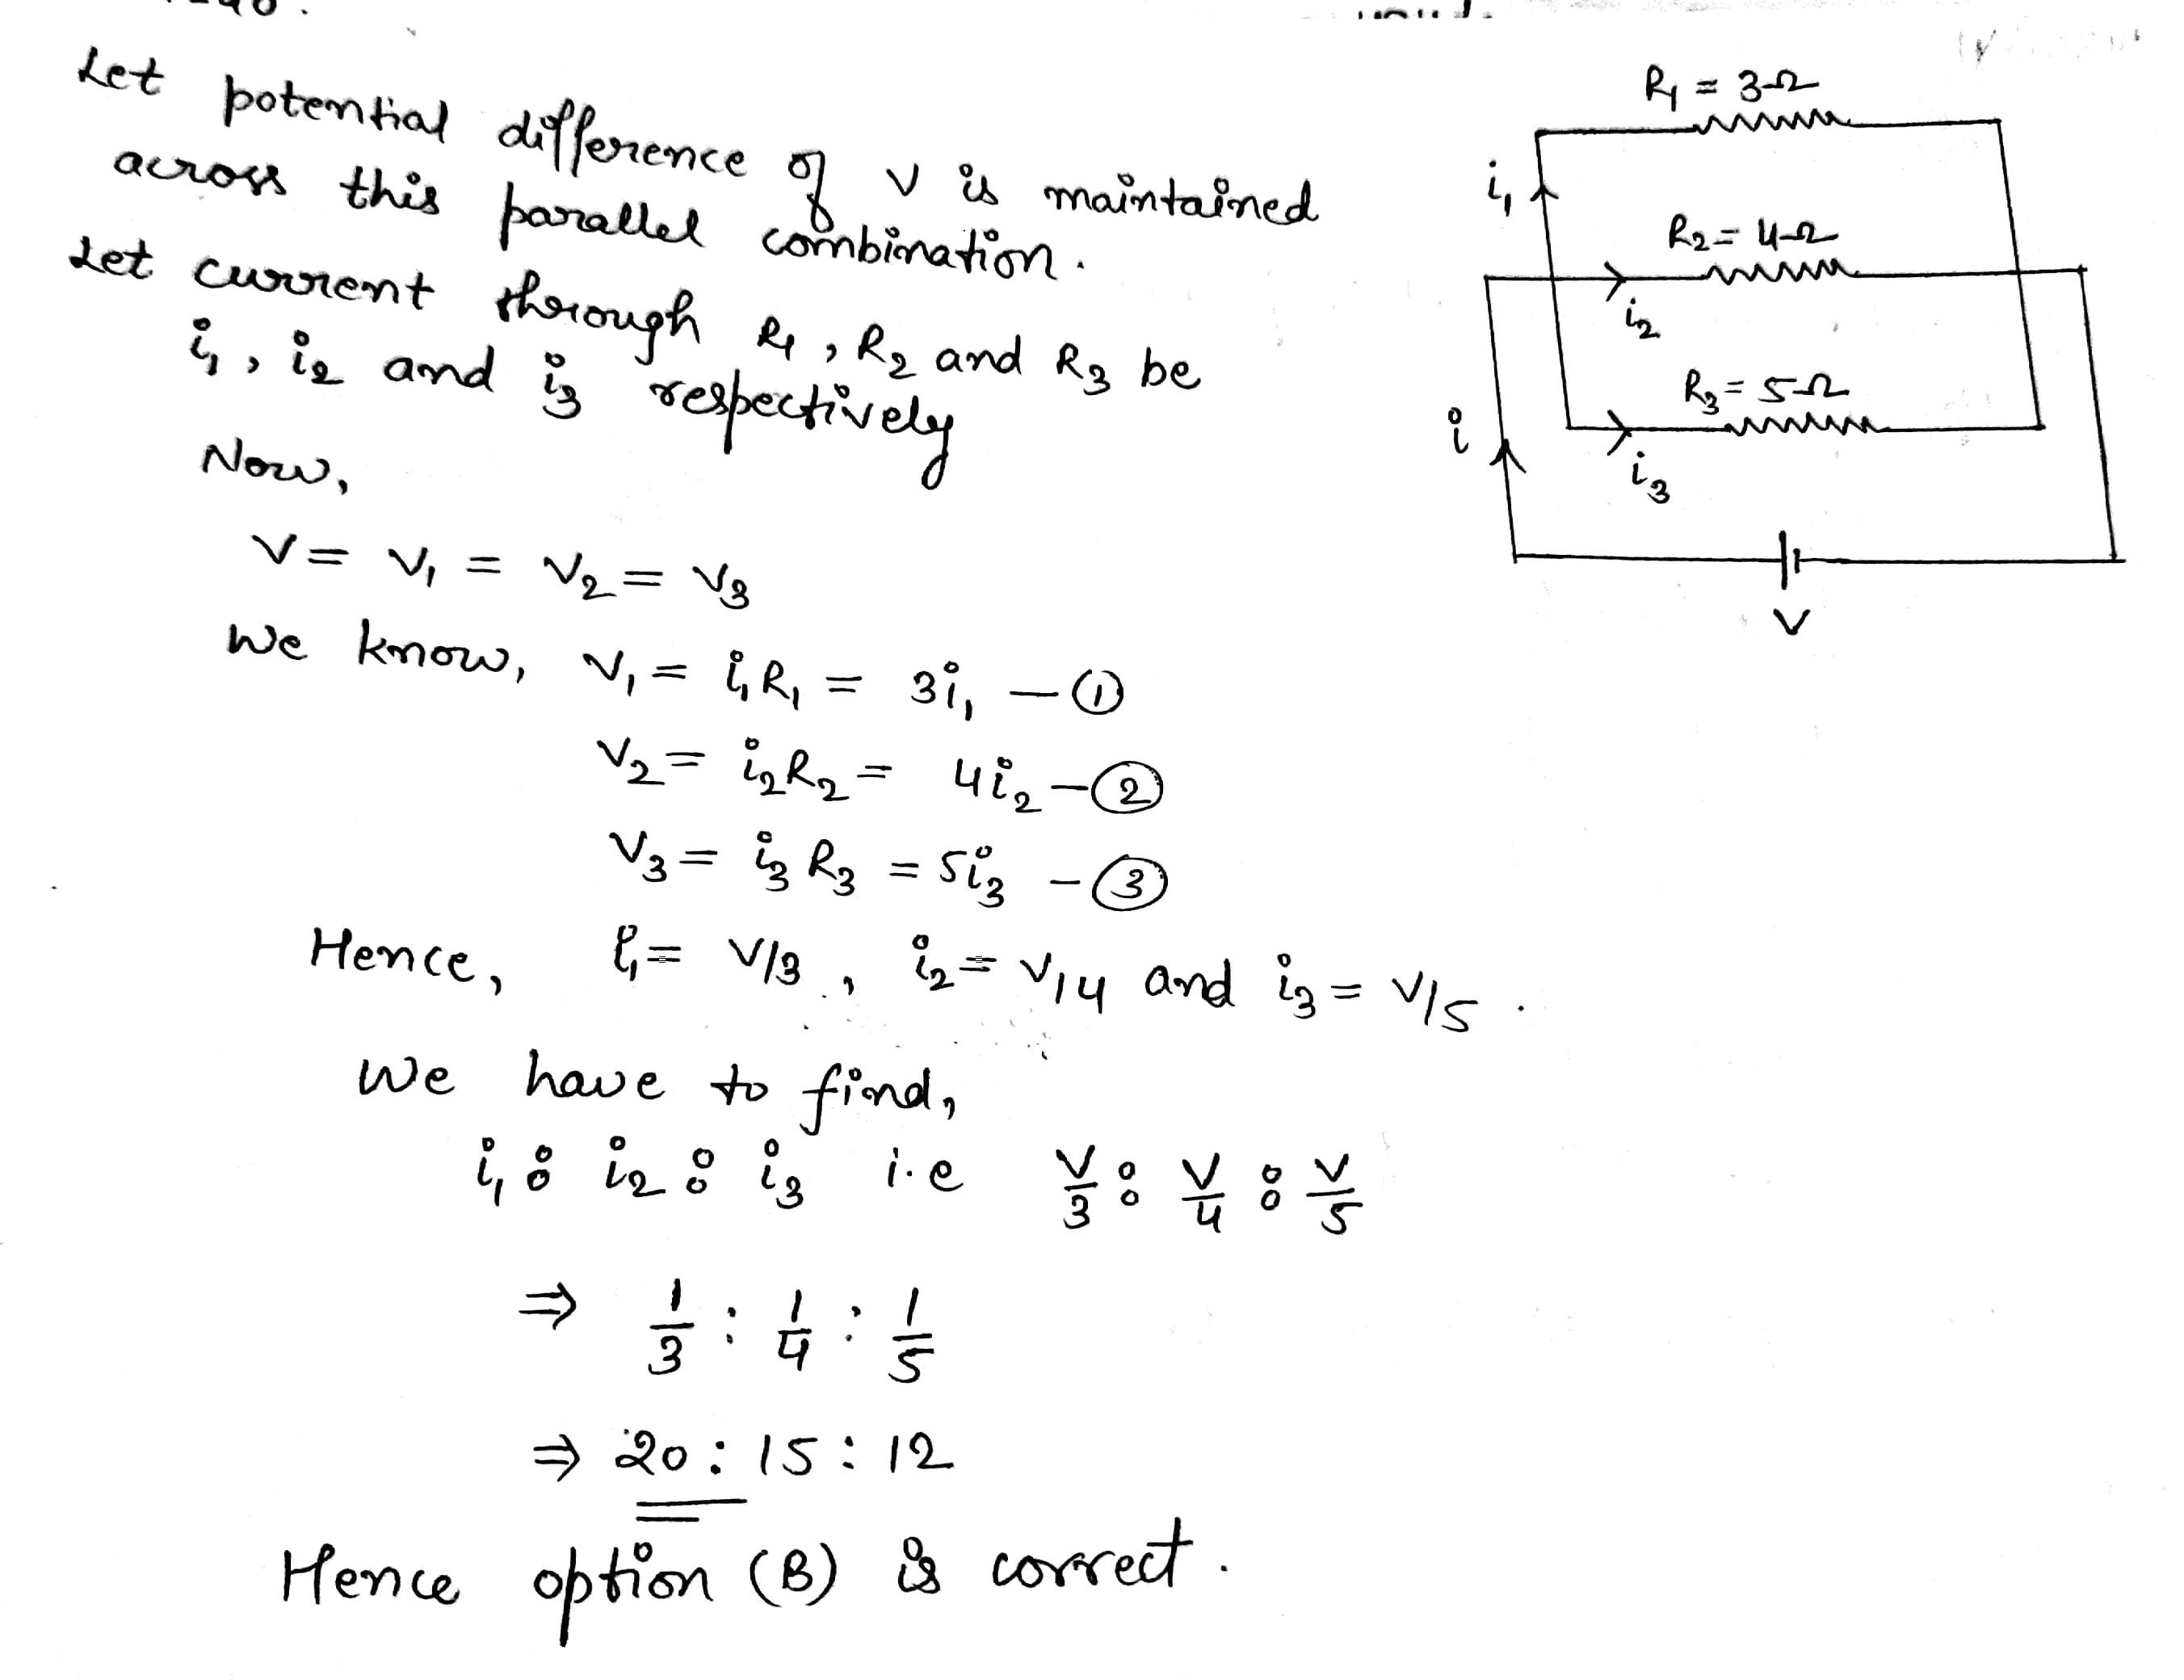 Let potential difference of V is maintained
across this parallel combination.
Let current through R₁, R₂ and R₃ be
i₁, i₂ and i₃ respectively
Now,
V = V₁ = V₂ = V₃
We know, V₁ = i₁R₁ = 3i₁ — ①
V₂ = i₂R₂ = 4i₂ — ②
V₃ = i₃R₃ = 5i₃ — ③
Hence, i₁ = V/3, i₂ = V/4 and i₃ = V/5.
We have to find,
i₁ : i₂ : i₃ i.e V/3 : V/4 : V/5
⇒ 1/3 : 1/4 : 1/5
⇒ 20 : 15 : 12
Hence option (B) is correct.
R₁ = 3Ω
i₁
R₂ = 4Ω
i₂
R₃ = 5Ω
i
i₃
V